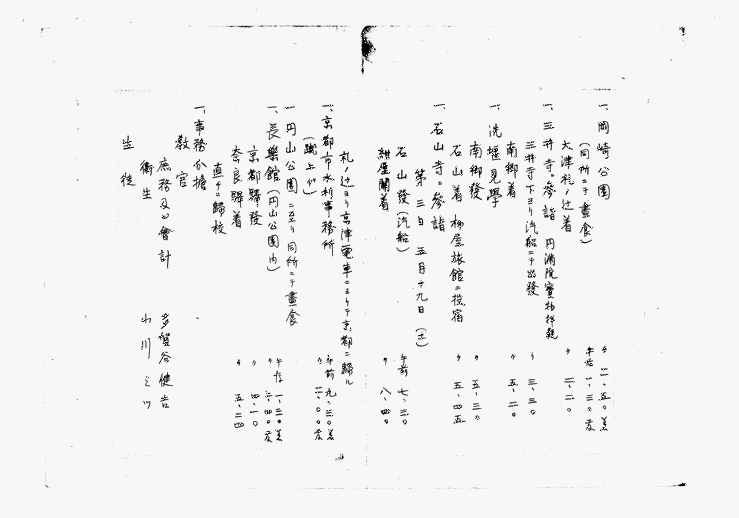 一、岡崎公園 〃 一一、五〇着
(同所ニテ晝食) 午后 一、三〇發
大津札ノ辻着 〃 二、二〇
一、三井寺ニ參詣 円滿院寳物拝観
三井寺下ヨリ汽船ニテ出發 〃 三、三〇
南郷着 〃 五、二〇
一、洗堰見學
南郷發 〃 五、三〇
石山着 柳屋旅館ニ投宿 〃 五、四五
一、石山寺ニ參詣
第三日 五月十九日(土)
石山發(汽船) 午前 七、三〇
紺屋關着 〃 八、四〇
札ノ辻ヨリ京津電車ニヨリテ京都ニ歸ル
一、京都市水利事務所 午前 九、三〇着
(蹴上ゲ) 〃 一一、〇〇發
一、円山公園ニ至リ同所ニテ晝食
一、長樂館(円山公園内) 午后 一、三〇着
〃 三、四〇發
京都驛發 〃 四、一〇
奈良驛着 〃 五、二四
直チニ歸校
一、事務分擔
教官
庶務及ビ會計 多賀谷健吉
衛生 小川ミツ
生徒